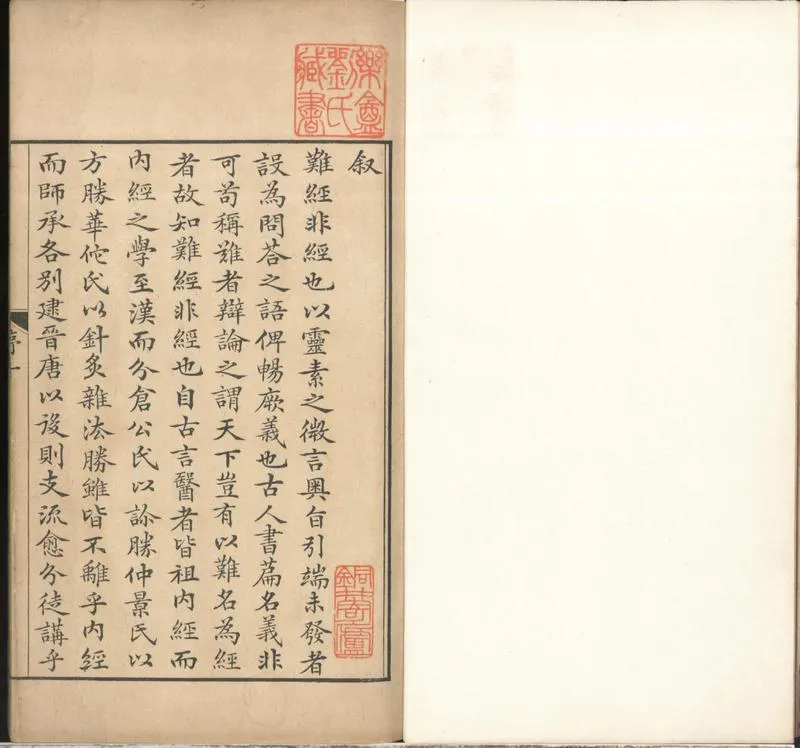 澿盦
劉氏
藏書
叙
難經非經也以靈素之微言奥旨引端未發者
設為問荅之語俾暢厥義也古人書萹名義非
可苟稱難者辯論之謂天下豈有以難名為經
者故知難經非經也自古言醫者皆祖內經而
內經之學至漢而分倉公氏以診勝仲景氏以
方勝華佗氏以針灸雜法勝雖皆不離乎內經
而師承各別建晉唐以後則支流愈分徒講乎
序一